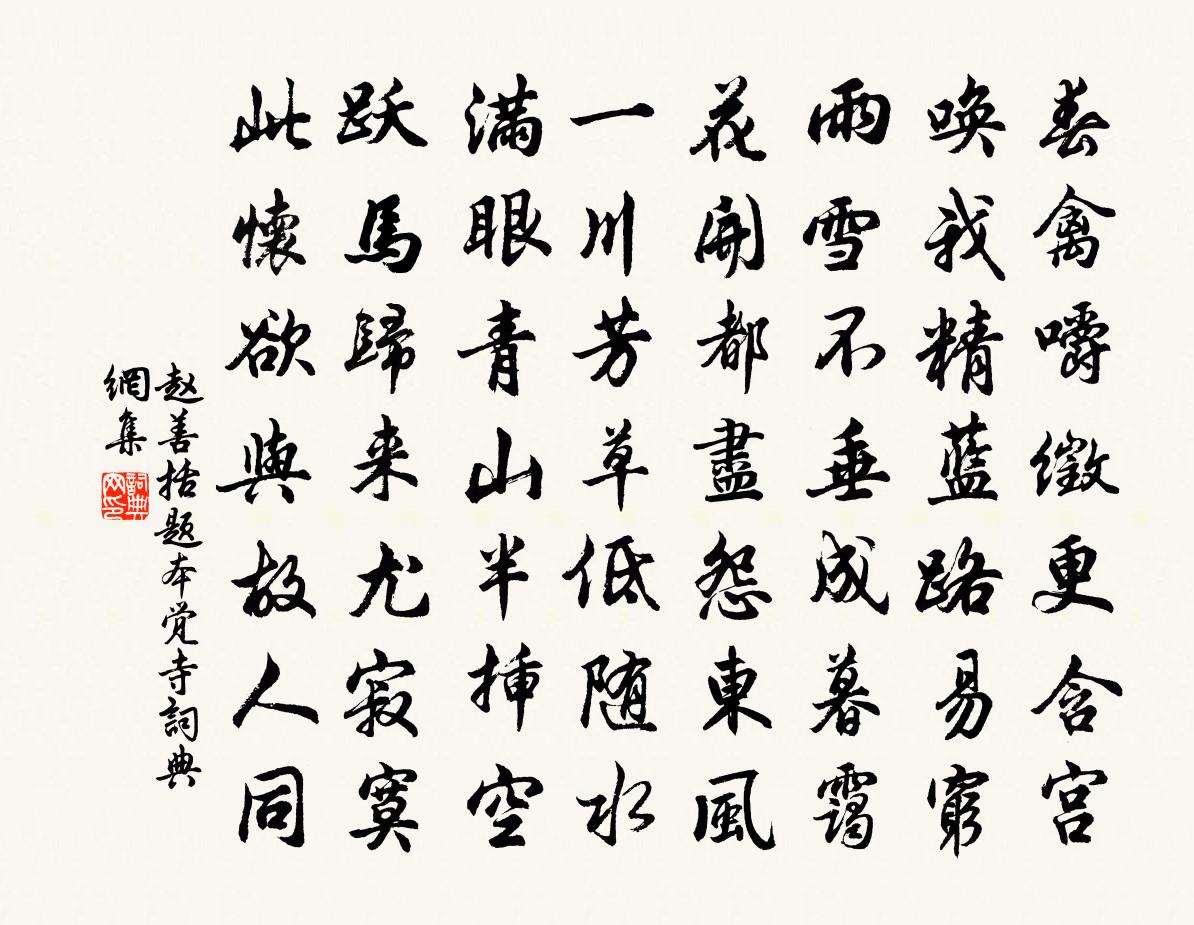 春禽嚼徵更含宫
唤我精藍路易窮
雨雪不垂成暮靄
花開都盡怨東風
一川芳草低随水
滿眼青山半挿空
跃馬歸来尤寂寞
此懷欲與故人同
赵善括题本觉寺詞典
網集
詞典网印